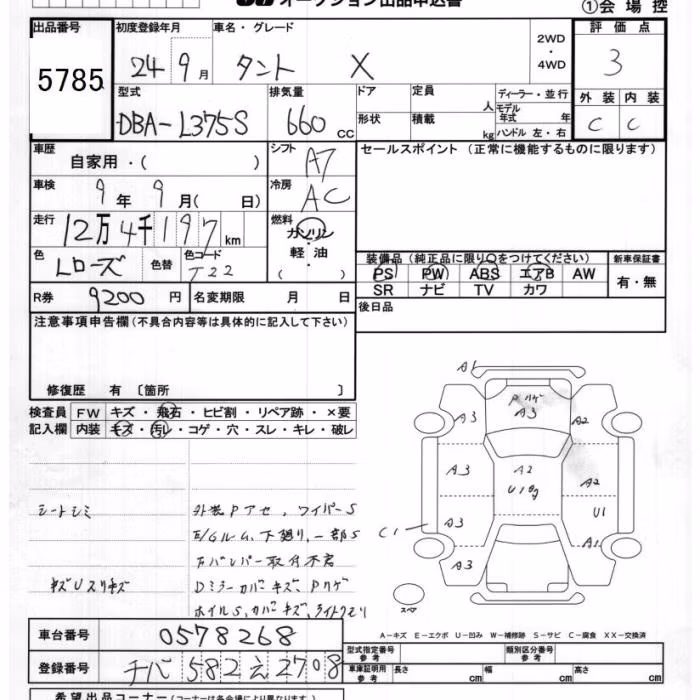 オークション出品申込書
①会場控
出品番号 初度登録年月 車名・グレード 2WD・4WD 評価点
5785 24年9月 タント X 3
型式 排気量 ドア 定員 人 ディーラー・並行 外装 内装
DBA-L375S 660cc 形状 積載 kg モデル年式 年 ハンドル 左・右 C C
車歴 自家用・( ) シフト A7 セールスポイント(正常に機能するものに限ります)
車検 9年9月( 日) 冷房 AC
走行 12万4千197km 燃料 ガソリン・軽油・( )
色 Lローズ 色替 色コード T22
装備品(純正品に限り○をつけてください) 新車保証書
PS PW ABS エアB AW 有・無
SR ナビ TV カワ
R券 9200円 名変期限 月 日 後日品
注意事項申告欄(不具合内容等は具体的に記入して下さい)
修復歴 有〔箇所 〕
検査員 FW キズ・飛石・ヒビ割・リペア跡・×要
記入欄 内装 キズ・汚レ・コゲ・穴・スレ・キレ・破レ
シートシミ 外装Pアセ、ワイパーS
E/Gルーム、下廻り、一部S
Fバンパー取付不良
キズUスリキズ Dミラーカバーキズ、Pハゲ
ホイルS、カバーキズ、ライトクモリ
A1
Pハゲ
A3 A3 A2
A3 A2 A2
U1
A3 U1
C1 A1
A3
スペア
A-キズ E-エクボ U-凹み W-補修跡 S-サビ C-腐食 XX-交換済
車台番号 0578268
登録番号 チバ582え2708
型式指定番号 参考 類別区分番号 参考
車庫証明用 参考 長さ cm 幅 cm 高さ cm
希望出品コーナー(コーナーは各会場により異なります)